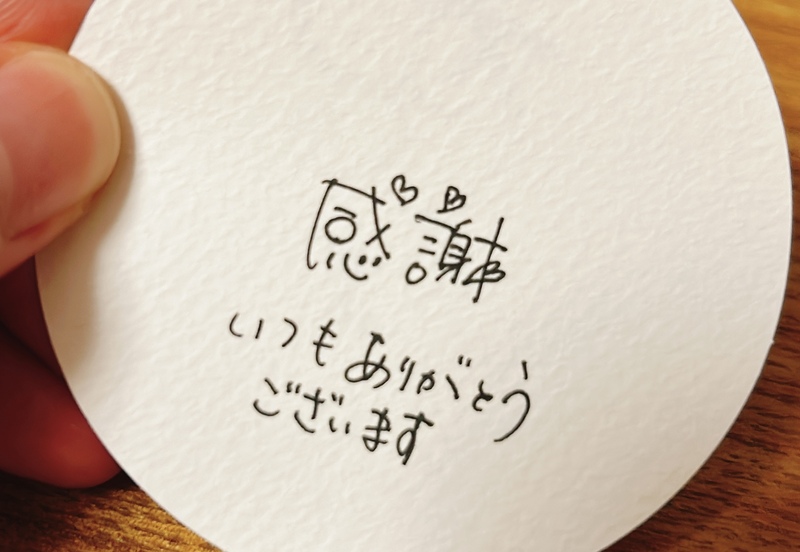 感謝
いつもありがとう
ございます